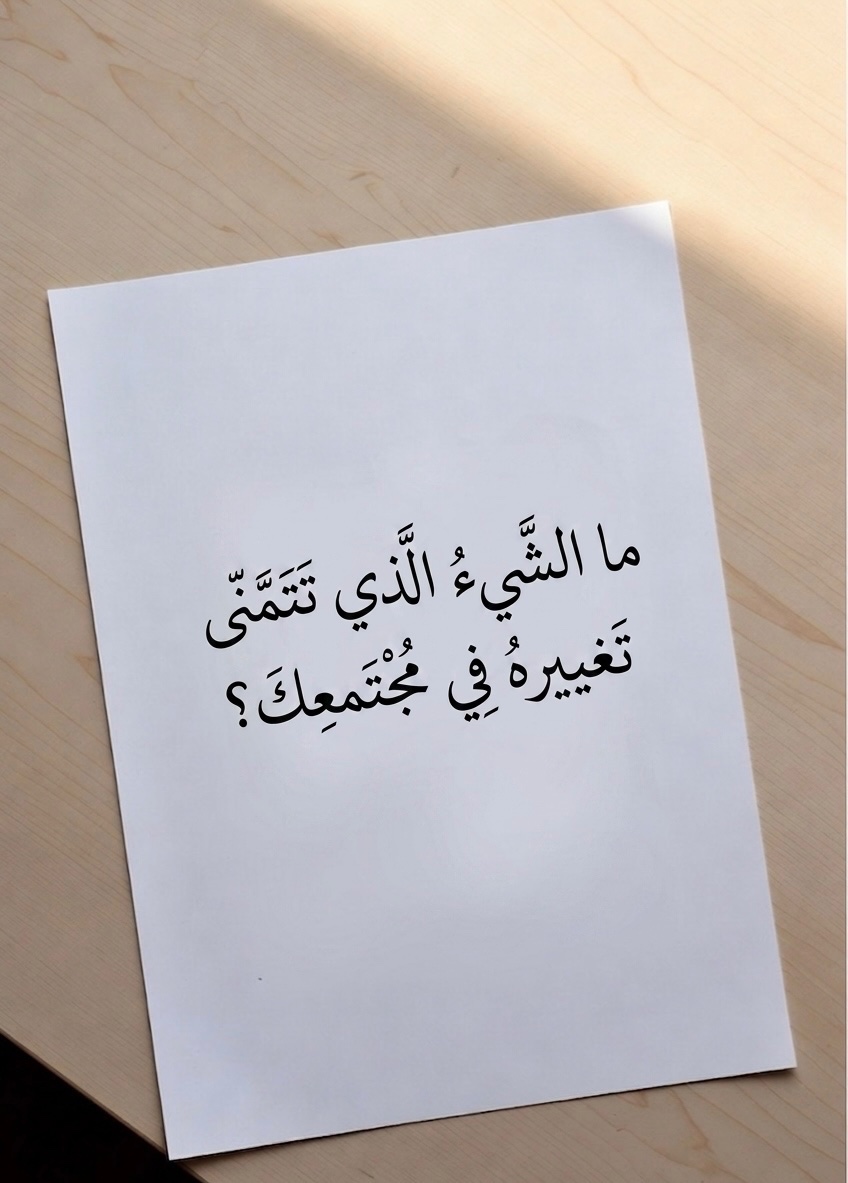 ما الشَّيءُ الَّذي تَتَمَنّى
تَغييرهُ فِي مُجْتَمعِكَ؟